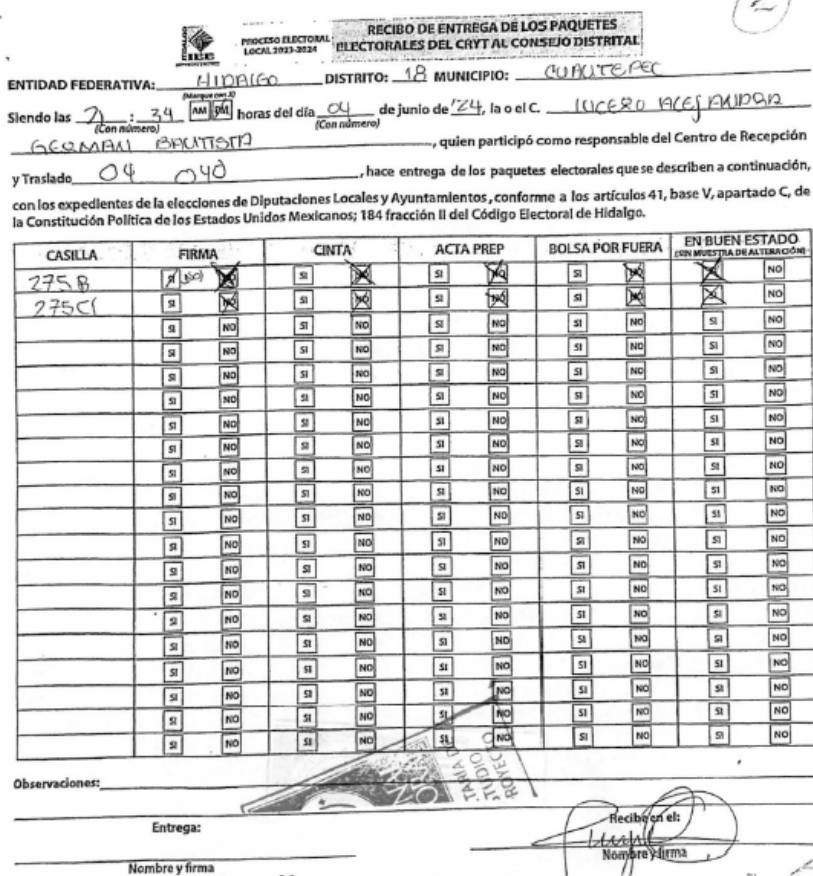 2
HIDALGO
IEEH
PROCESO ELECTORAL
LOCAL 2023-2024
RECIBO DE ENTREGA DE LOS PAQUETES
ELECTORALES DEL CRYT AL CONSEJO DISTRITAL
ENTIDAD FEDERATIVA: HIDALGO DISTRITO: 18 MUNICIPIO: CUAUTEPEC
(Marque con X)
Siendo las 21 : 34 AM PM horas del día 04 de junio de '24, la o el C. LUCERO ALEJANDRA
(Con número) (Con número)
GERMAN BAUTISTA, quien participó como responsable del Centro de Recepción
y Traslado 04 040, hace entrega de los paquetes electorales que se describen a continuación,
con los expedientes de la elecciones de Diputaciones Locales y Ayuntamientos, conforme a los artículos 41, base V, apartado C, de
la Constitución Política de los Estados Unidos Mexicanos; 184 fracción II del Código Electoral de Hidalgo.
CASILLA FIRMA CINTA ACTA PREP BOLSA POR FUERA EN BUEN ESTADO
(SIN MUESTRA DE ALTERACIÓN)
275 B SI (NO) NO SI NO SI NO SI NO SI NO
275C1 SI NO SI NO SI NO SI NO SI NO
SI NO SI NO SI NO SI NO SI NO
SI NO SI NO SI NO SI NO SI NO
SI NO SI NO SI NO SI NO SI NO
SI NO SI NO SI NO SI NO SI NO
SI NO SI NO SI NO SI NO SI NO
SI NO SI NO SI NO SI NO SI NO
SI NO SI NO SI NO SI NO SI NO
SI NO SI NO SI NO SI NO SI NO
SI NO SI NO SI NO SI NO SI NO
SI NO SI NO SI NO SI NO SI NO
SI NO SI NO SI NO SI NO SI NO
SI NO SI NO SI NO SI NO SI NO
SI NO SI NO SI NO SI NO SI NO
SI NO SI NO SI NO SI NO SI NO
SI NO SI NO SI NO SI NO SI NO
SI NO SI NO SI NO SI NO SI NO
SI NO SI NO SI NO SI NO SI NO
SI NO SI NO SI NO SI NO SI NO
TARIA DE
TUDIO
ROYECTO
Observaciones:
Entrega: Recibe en el:
Nombre y firma Nombre y firma